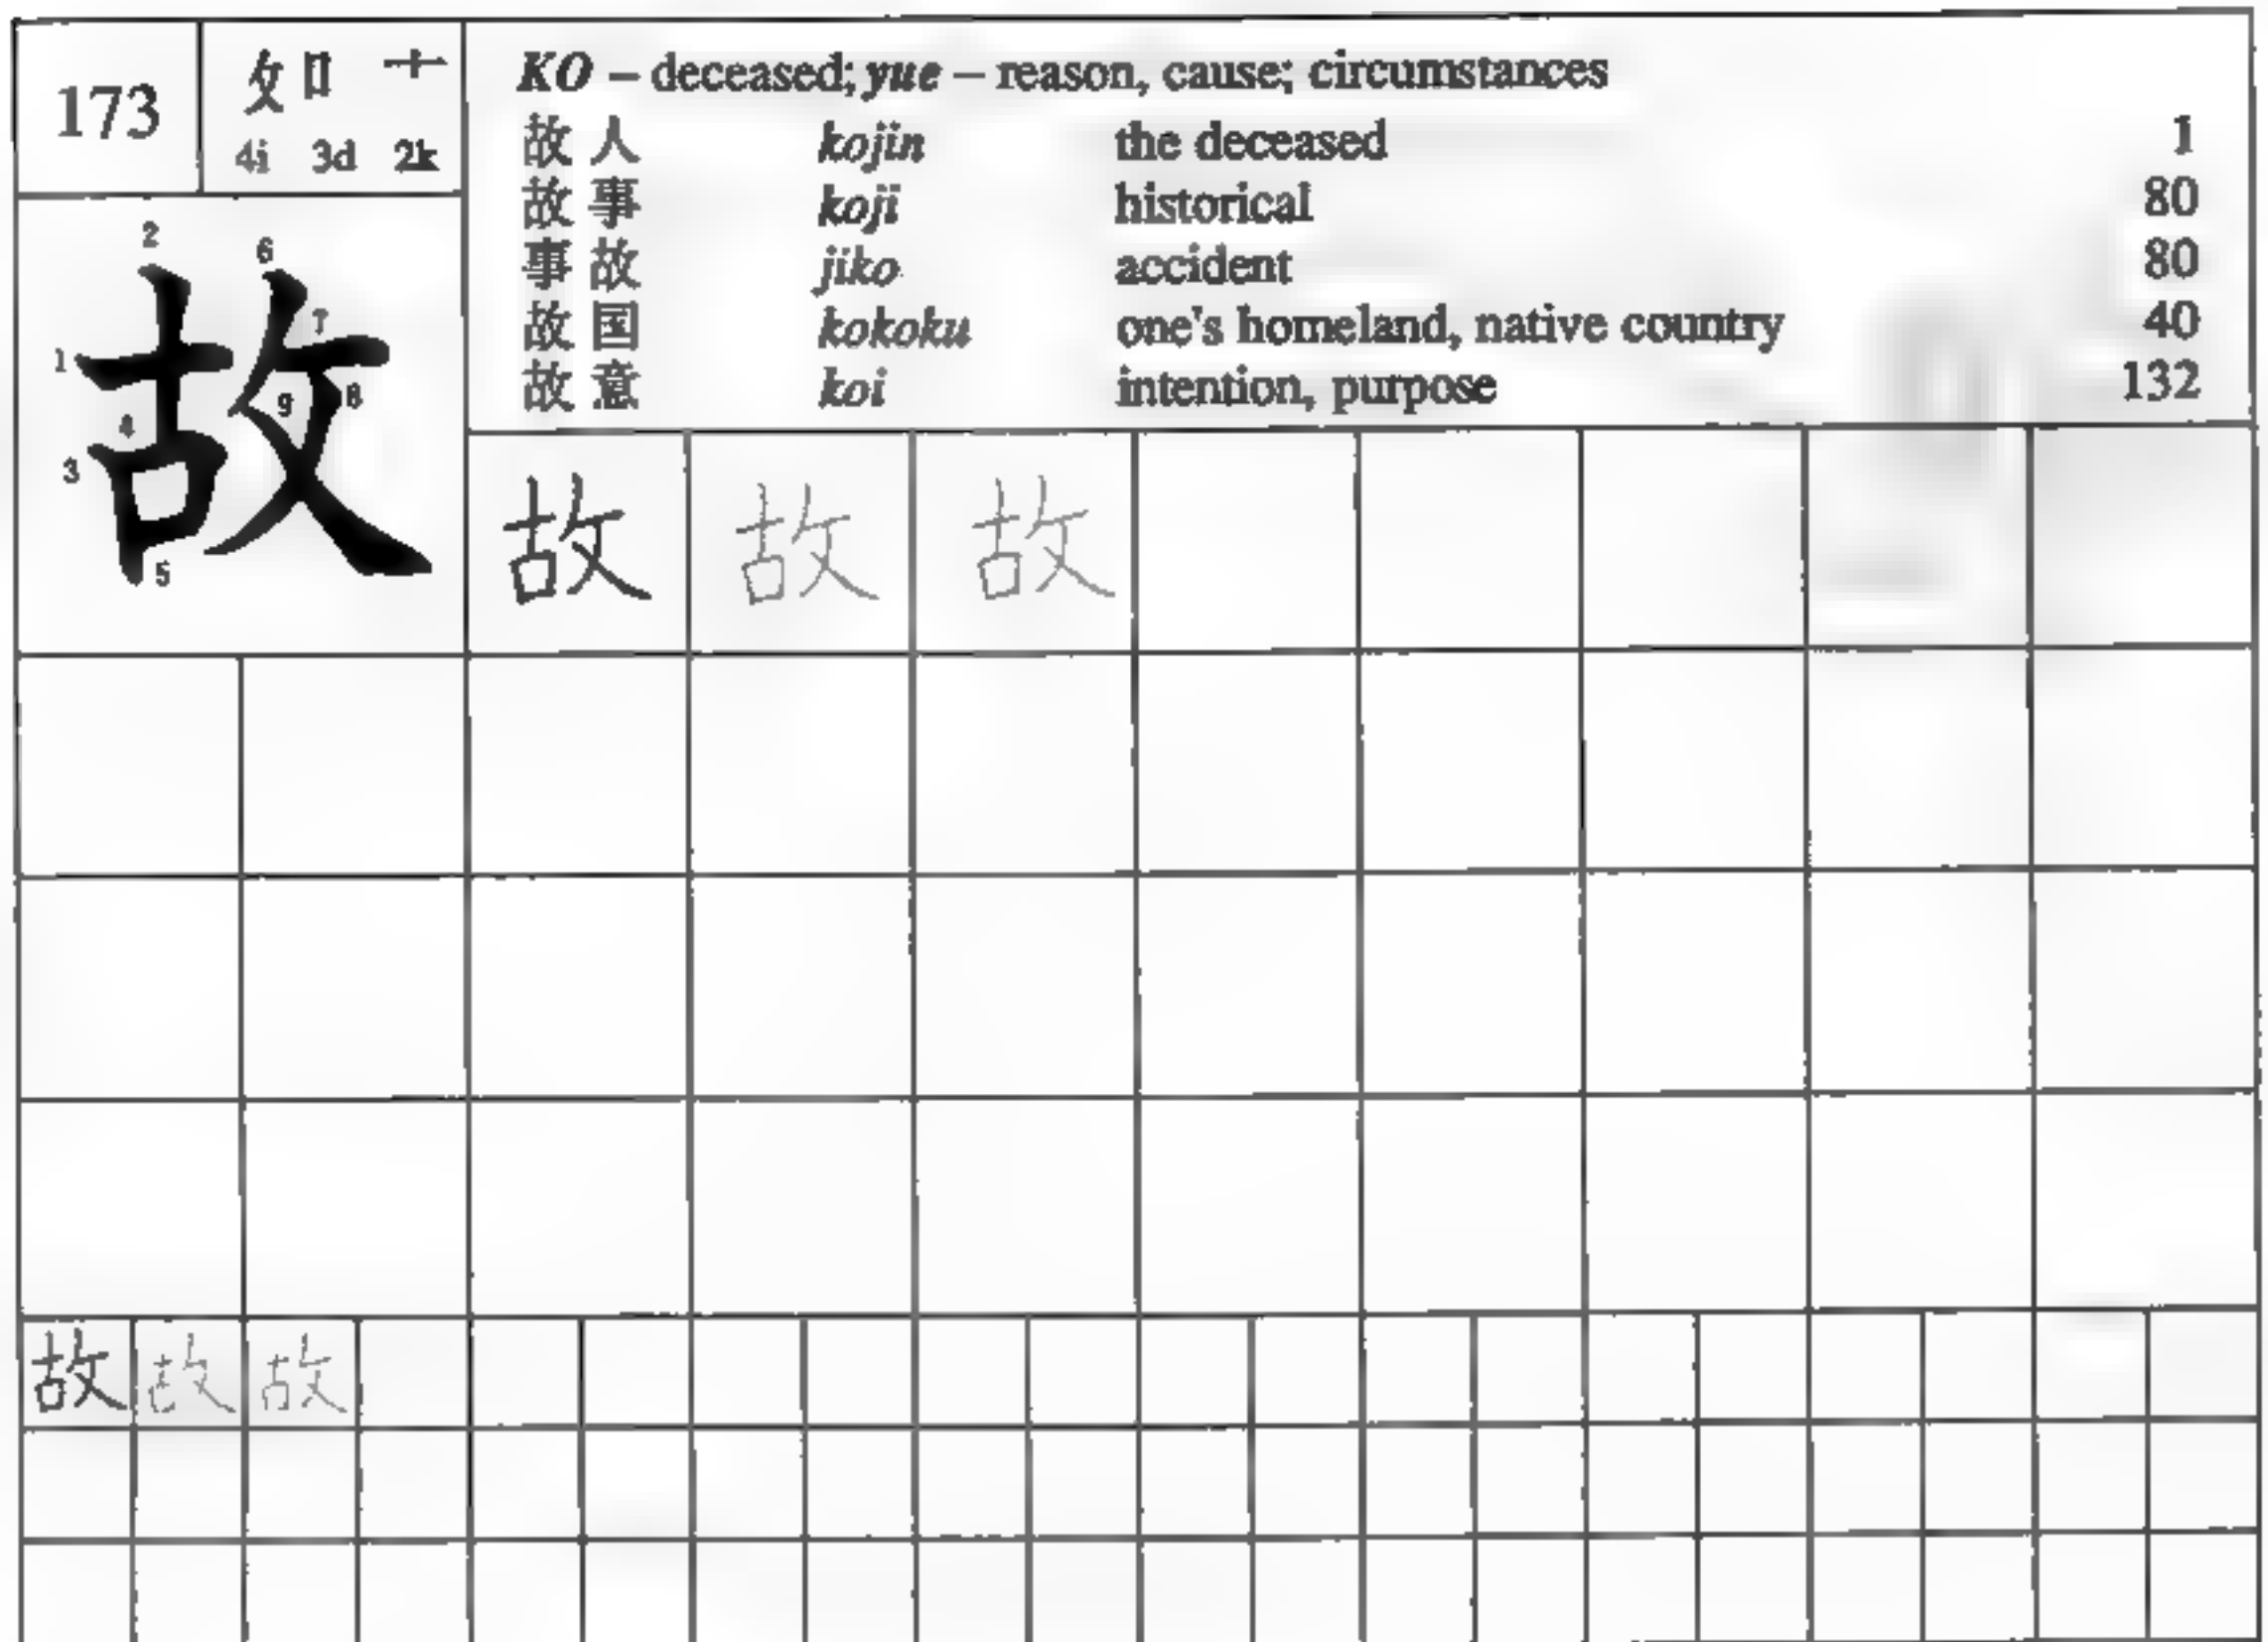 173
攵 口 十
4i 3d 2k
KO – deceased; yue – reason, cause; circumstances
故人 kojin the deceased 1
故事 koji historical 80
事故 jiko accident 80
故国 kokoku one's homeland, native country 40
故意 koi intention, purpose 132
1 2 3 4 5 6 7 8 9
故
故 故 故
故 故 故